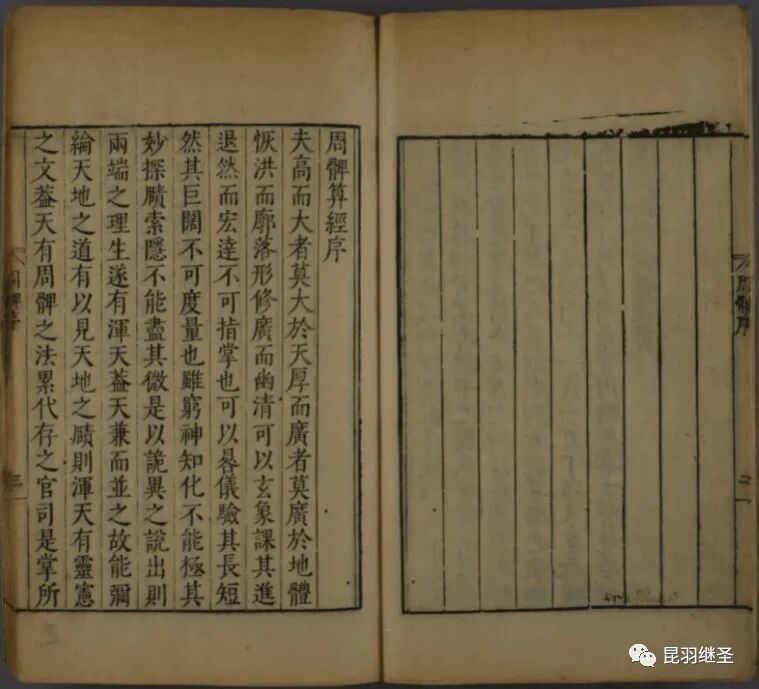 周髀序
周髀算經序
夫高而大者莫大於天厚而廣者莫廣於地體
恢洪而廓落形修廣而幽清可以玄象課其進
退然而宏達不可指掌也可以晷儀驗其長短
然其巨闊不可度量也雖窮神知化不能極其
妙探賾索隱不能盡其微是以詭異之說出則
兩端之理生遂有渾天蓋天兼而並之故能彌
綸天地之道有以見天地之賾則渾天有靈憲
之文蓋天有周髀之法累代存之官司是掌所
周髀序
三
昆羽继圣